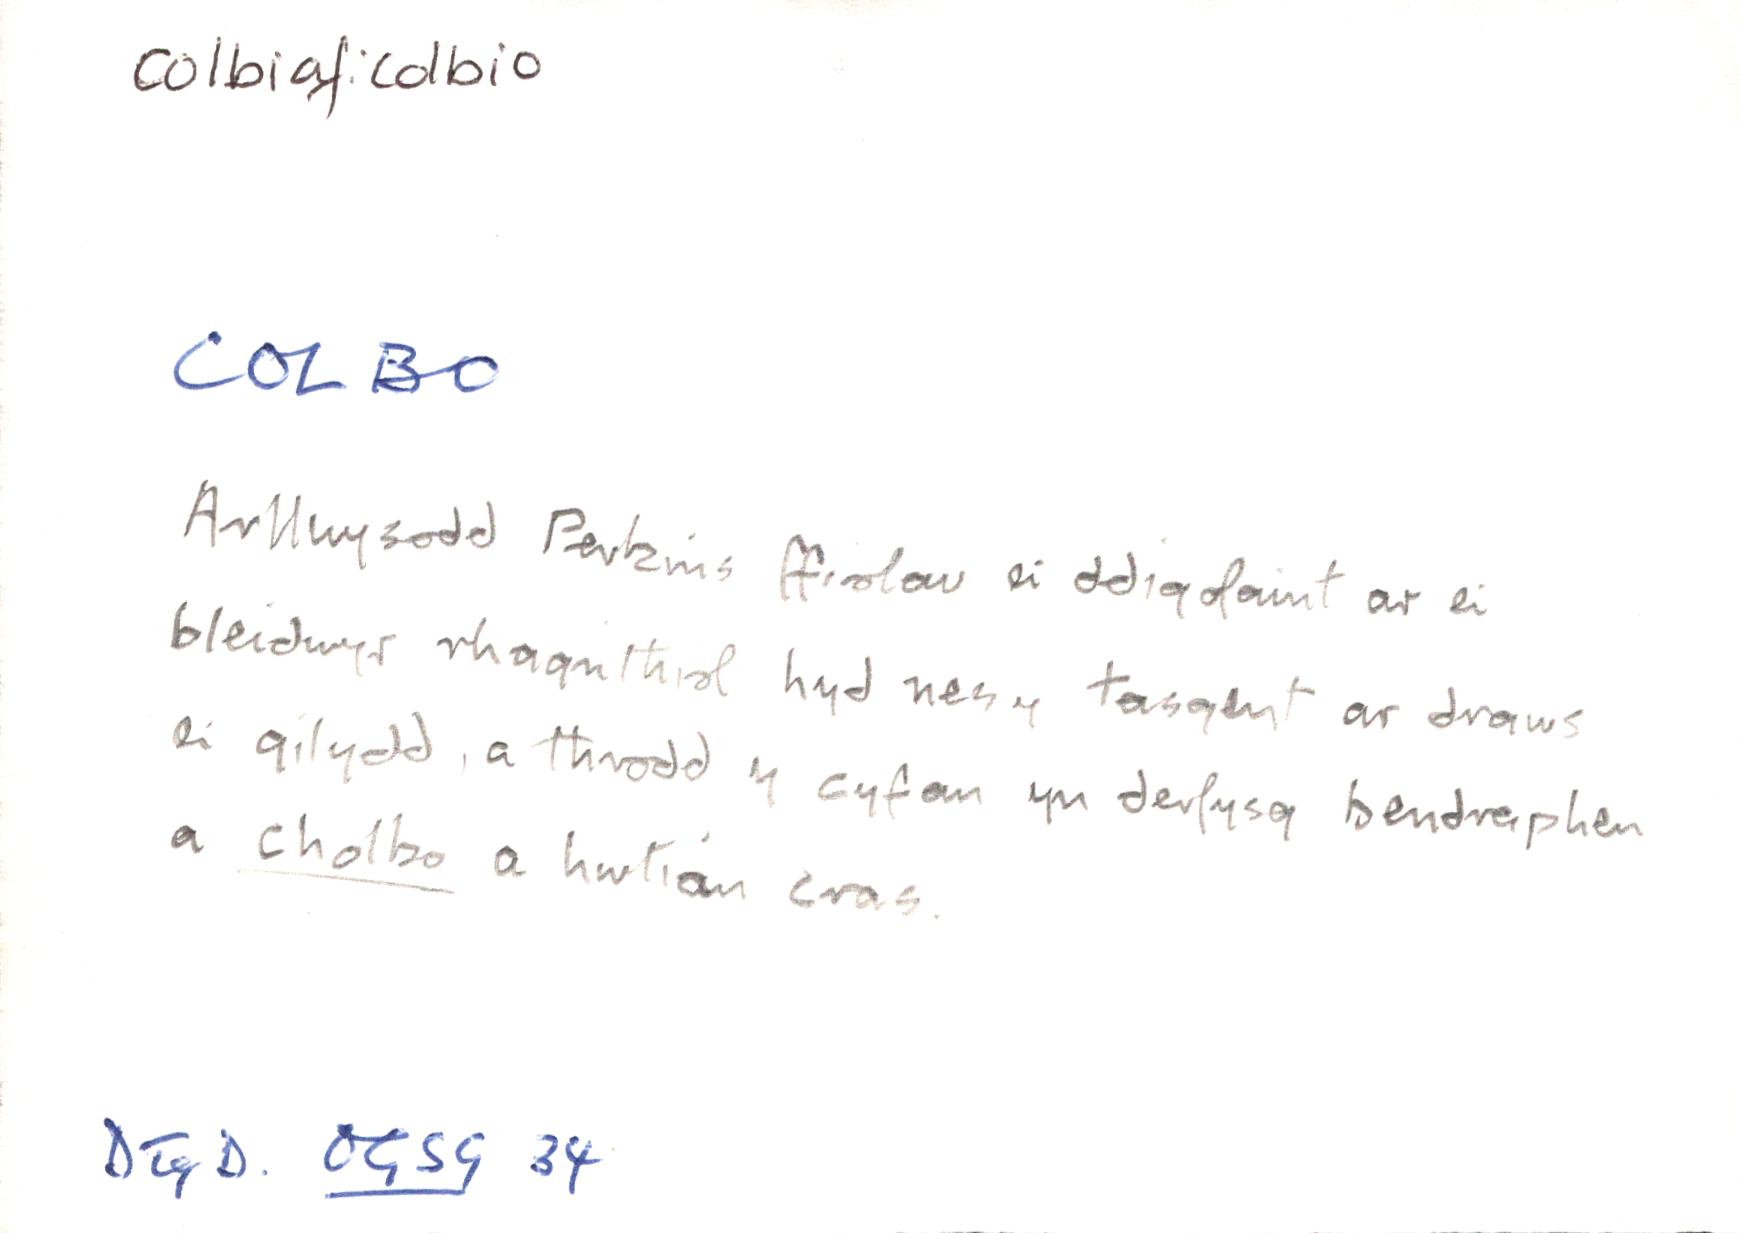 colbiaf: colbio
COLBO
Arllwysodd Perkins ffiolau ei ddigofaint ar ei
bleidwyr rhagrithiol hyd nes y tasgent ar draws
ei gilydd, a throdd y cyfan yn derfysg bendraphen
a cholbo a hwtian cras.
DTgD. OGSG 34